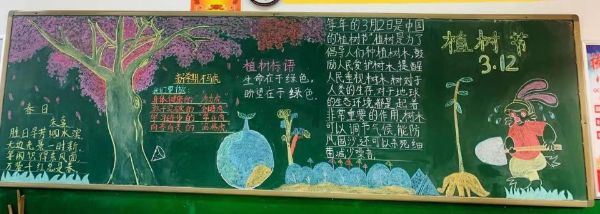 春日
朱熹
胜日寻芳泗水滨
无边光景一时新
等闲识得东风面
万紫千红总是春
植树标语
生命在于绿色，
盼望在于绿色。
每年的3月12日是中国
的"植树节"植树是为了
倡导人们种植树木，鼓
励人民爱护树木，提醒
人民重视树木。树对于
人类的生存，对于地球
的生态环境都是起着
非常重要的作用，树木
可以调节气候，能防
风固沙，还可以杀死细
菌减少噪音。
植树节
3.12